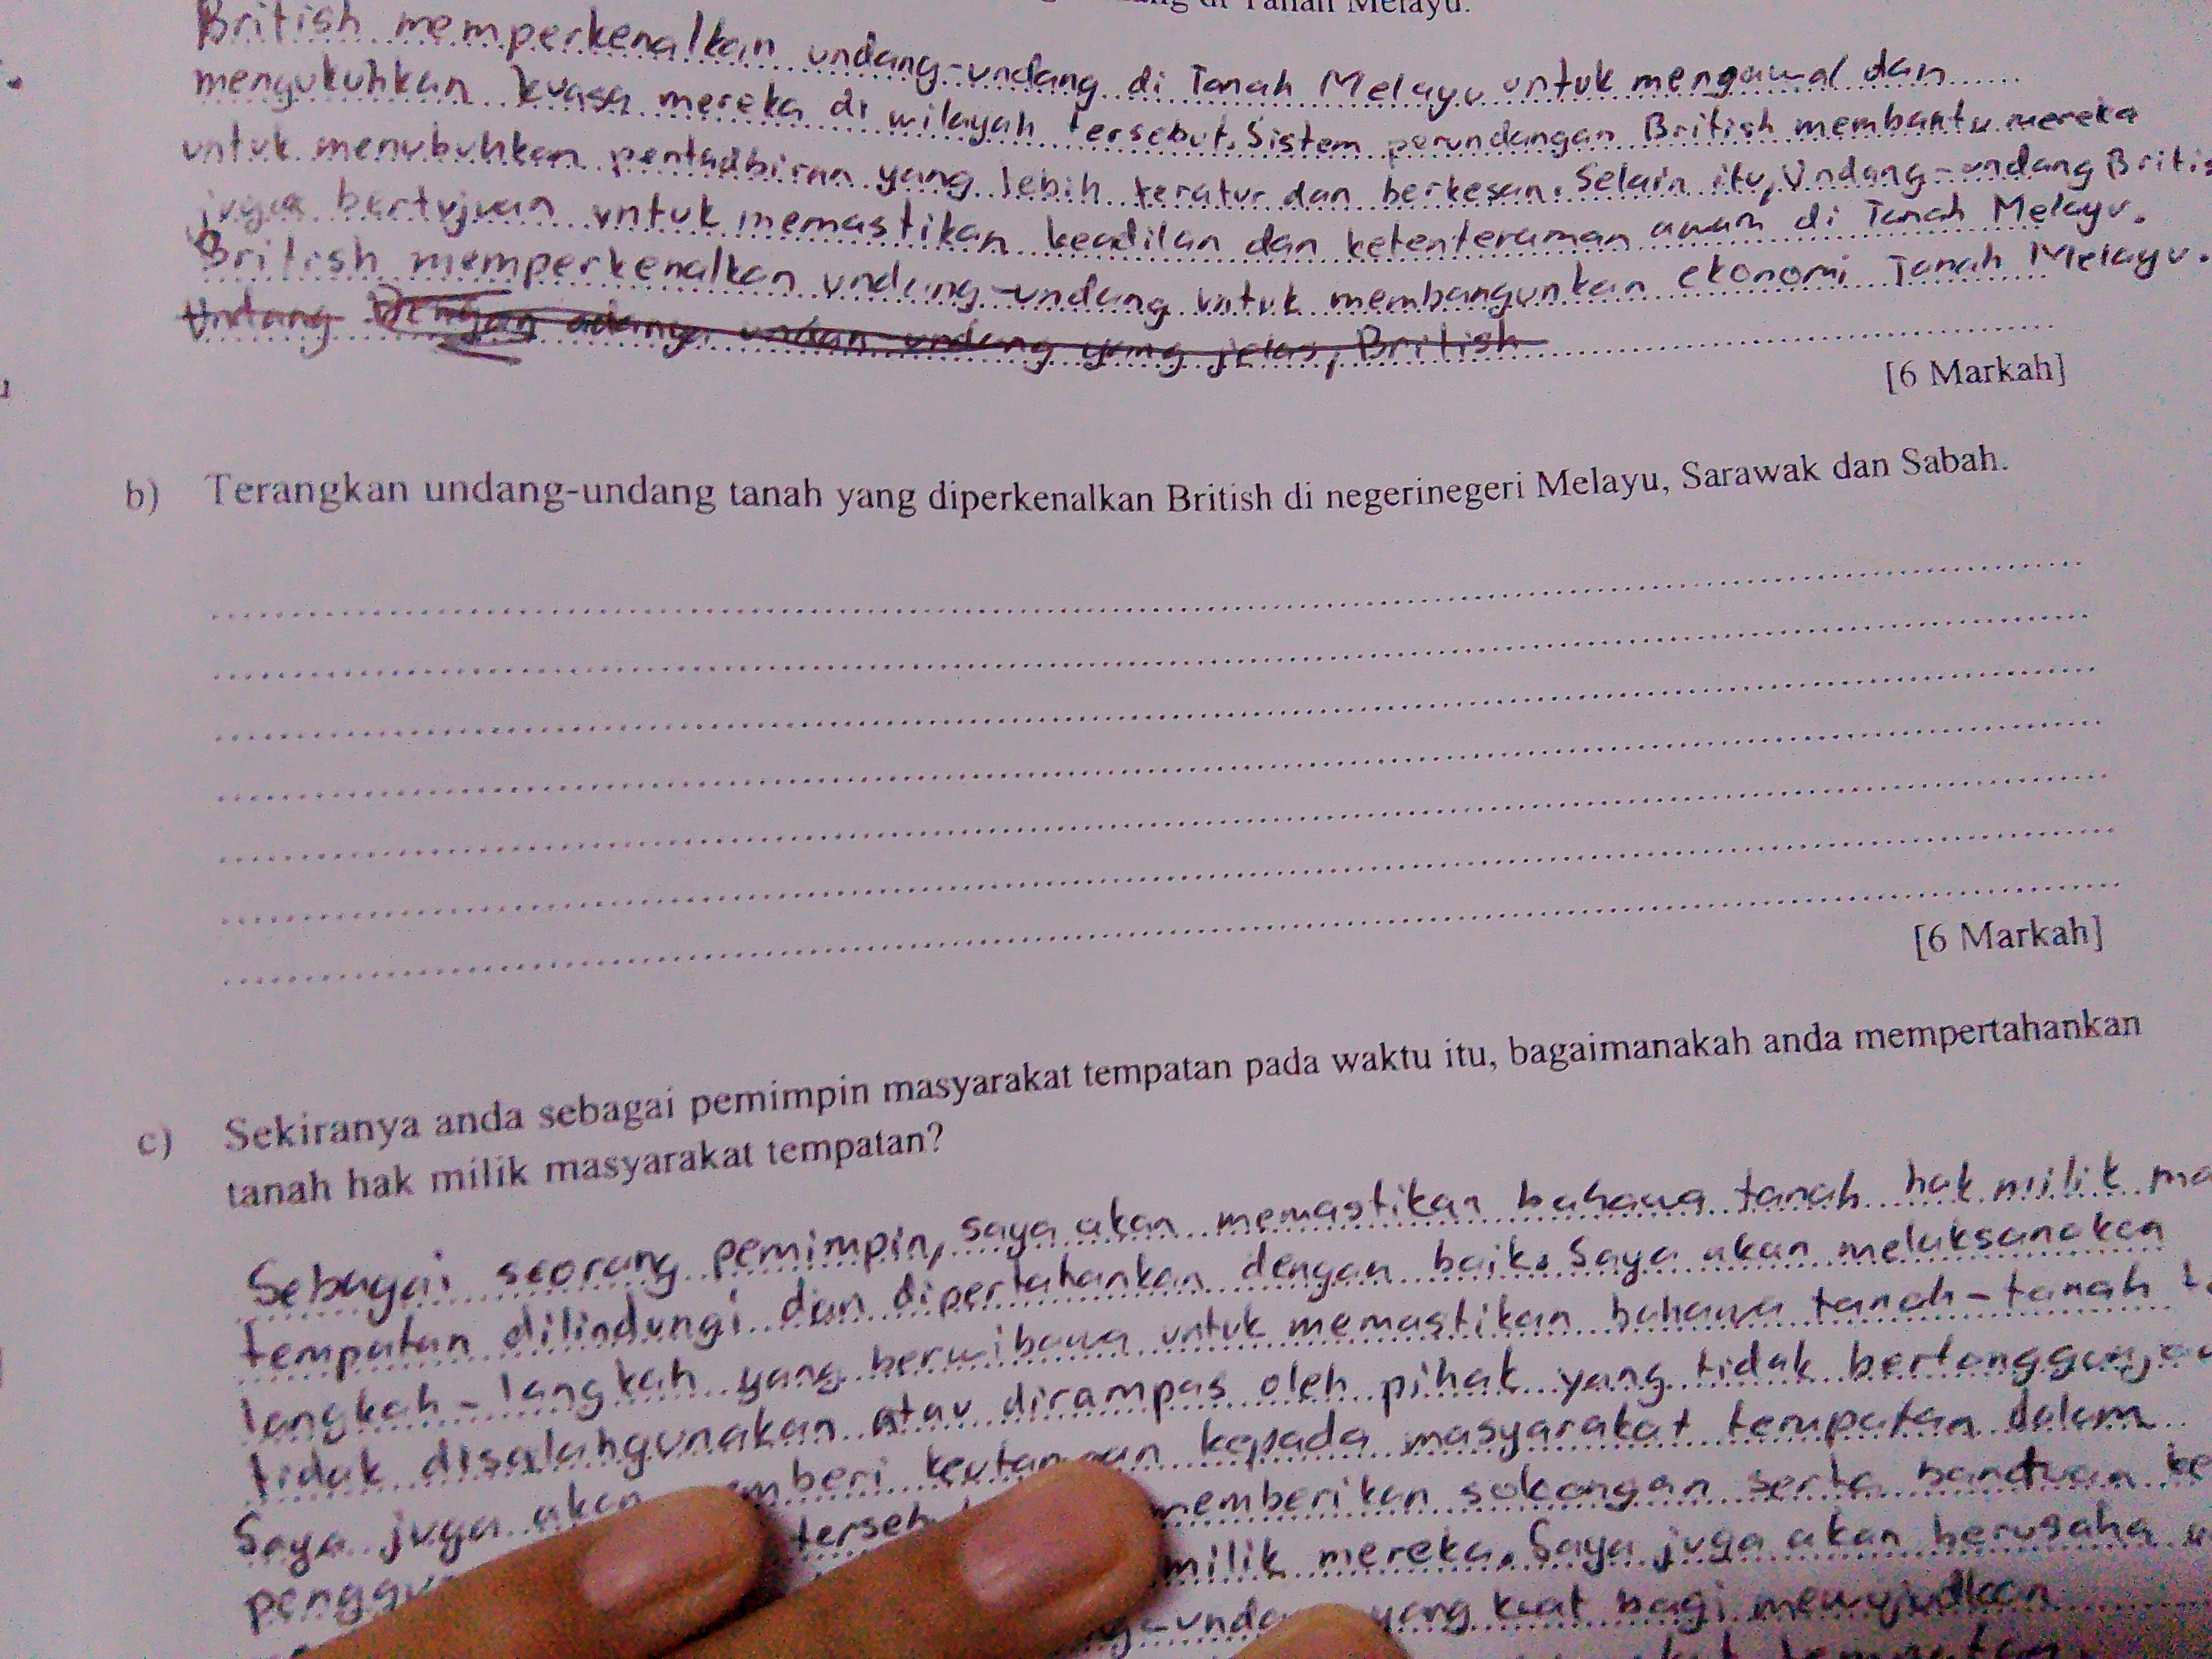 di Tanah Melayu.
British memperkenalkan undang-undang di Tanah Melayu untuk mengawal dan
mengukuhkan kuasa mereka di wilayah tersebut. Sistem perundangan British membantu mereka
untuk menubuhkan pentadbiran yang lebih teratur dan berkesan. Selain itu, Undang-undang Britis
juga bertujuan untuk memastikan keadilan dan ketenteraman awam di Tanah Melayu.
British memperkenalkan undang-undang untuk membangunkan ekonomi Tanah Melayu.
Undang Dengan adanya undan undang yang jelas, British
[6 Markah]
b) Terangkan undang-undang tanah yang diperkenalkan British di negerinegeri Melayu, Sarawak dan Sabah.
[6 Markah]
c) Sekiranya anda sebagai pemimpin masyarakat tempatan pada waktu itu, bagaimanakah anda mempertahankan
tanah hak milik masyarakat tempatan?
Sebagai seorang pemimpin, saya akan memastikan bahawa tanah hak milik ma
tempatan dilindungi dan dipertahankan dengan baik. Saya akan melaksanakan
langkah-langkah yang berwibawa untuk memastikan bahawa tanah-tanah
tidak disalahgunakan atau dirampas oleh pihak yang tidak
Saya juga akan mberi kepada masyarakat tempatan dalam
terseb memberikan sokongan serta bantuan ke
milik mereka. Saya juga akan berusaha
yang kuat bagi mewujudkan